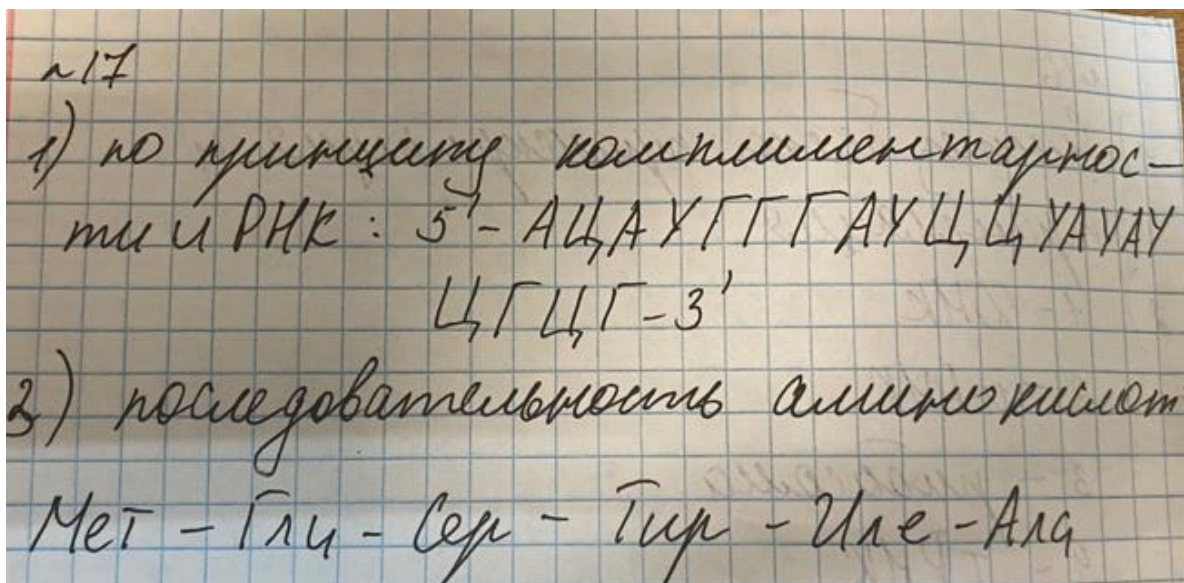 №17
1) по принципу комплиментарнос-
ти иРНК: 5'-АЦАУГГГАУЦЦУАУАУ
ЦГЦГ-3'
2) последовательность аминокислот
Мет - Гли - Сер - Тир - Иле - Ала